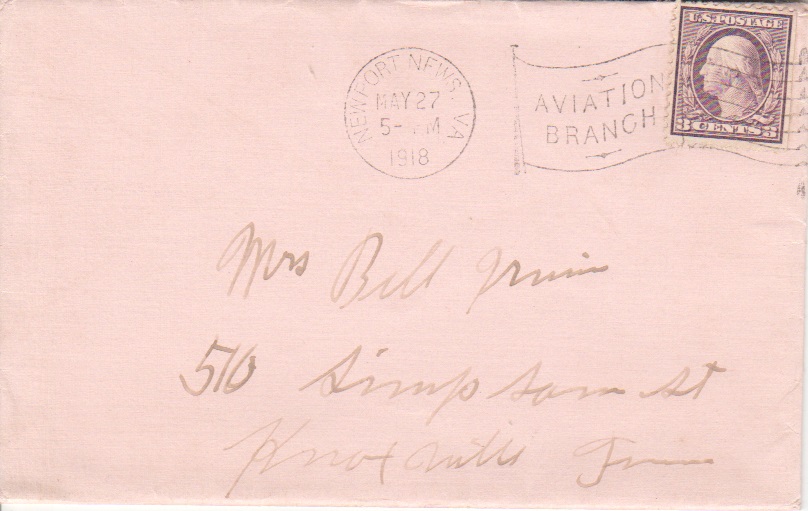 NEWPORT NEWS. VA
MAY 27
5- PM
1918
AVIATION
BRANCH
U.S. POSTAGE
3 CENTS 3
Mrs Bell Irwin
510 Simpson St
Knoxville Tenn